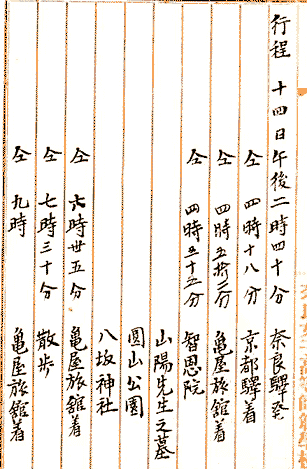 行程 十四日午後二時四十分 奈良驛発
仝 四時十八分 京都驛着
仝 四時五拾二分 亀屋旅舘着
仝 四時五十五分 智恩院
山陽先生之墓
圓山公園
八坂神社
仝 六時卅五分 亀屋旅舘着
仝 七時三十分 散歩
仝 九時 亀屋旅舘着